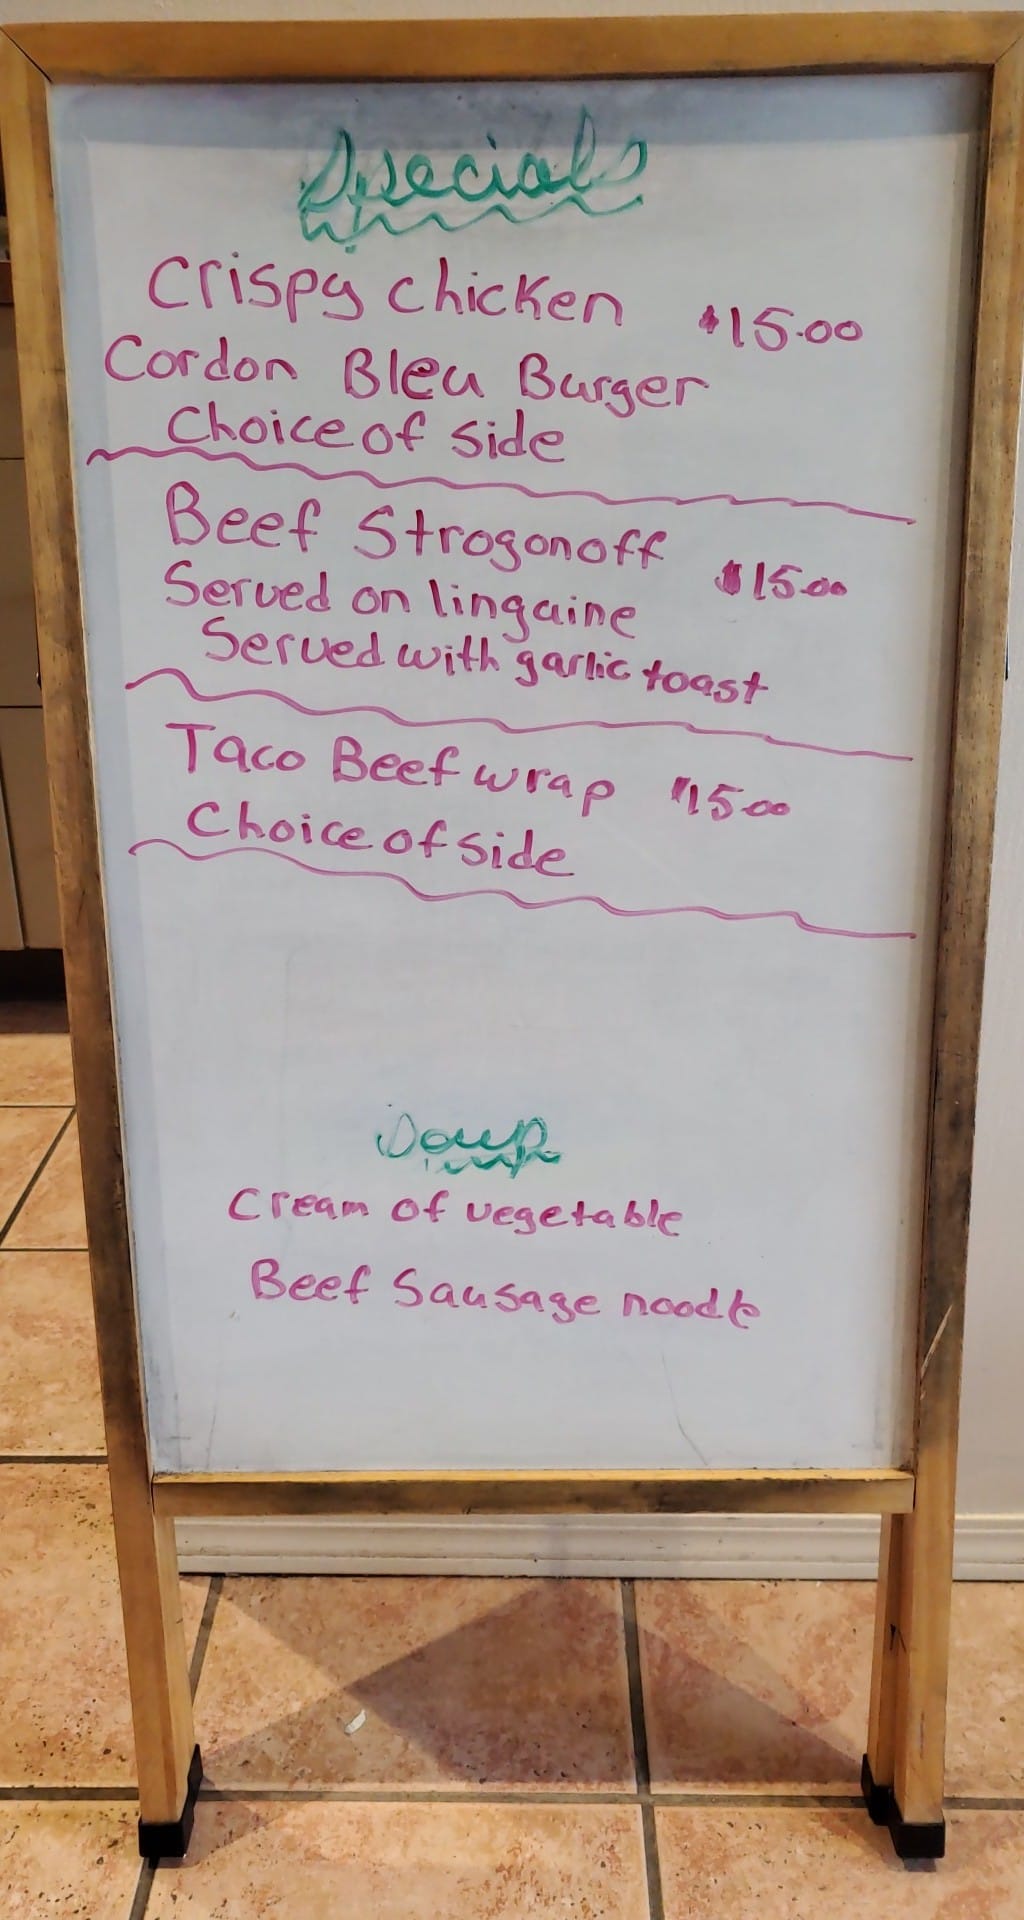 Specials
Crispy Chicken $15.00
Cordon Bleu Burger
Choice of side
Beef Strogonoff $15.00
Served on linguine
Served with garlic toast
Taco Beef wrap $15.00
Choice of side
Soup
Cream of vegetable
Beef Sausage noodle